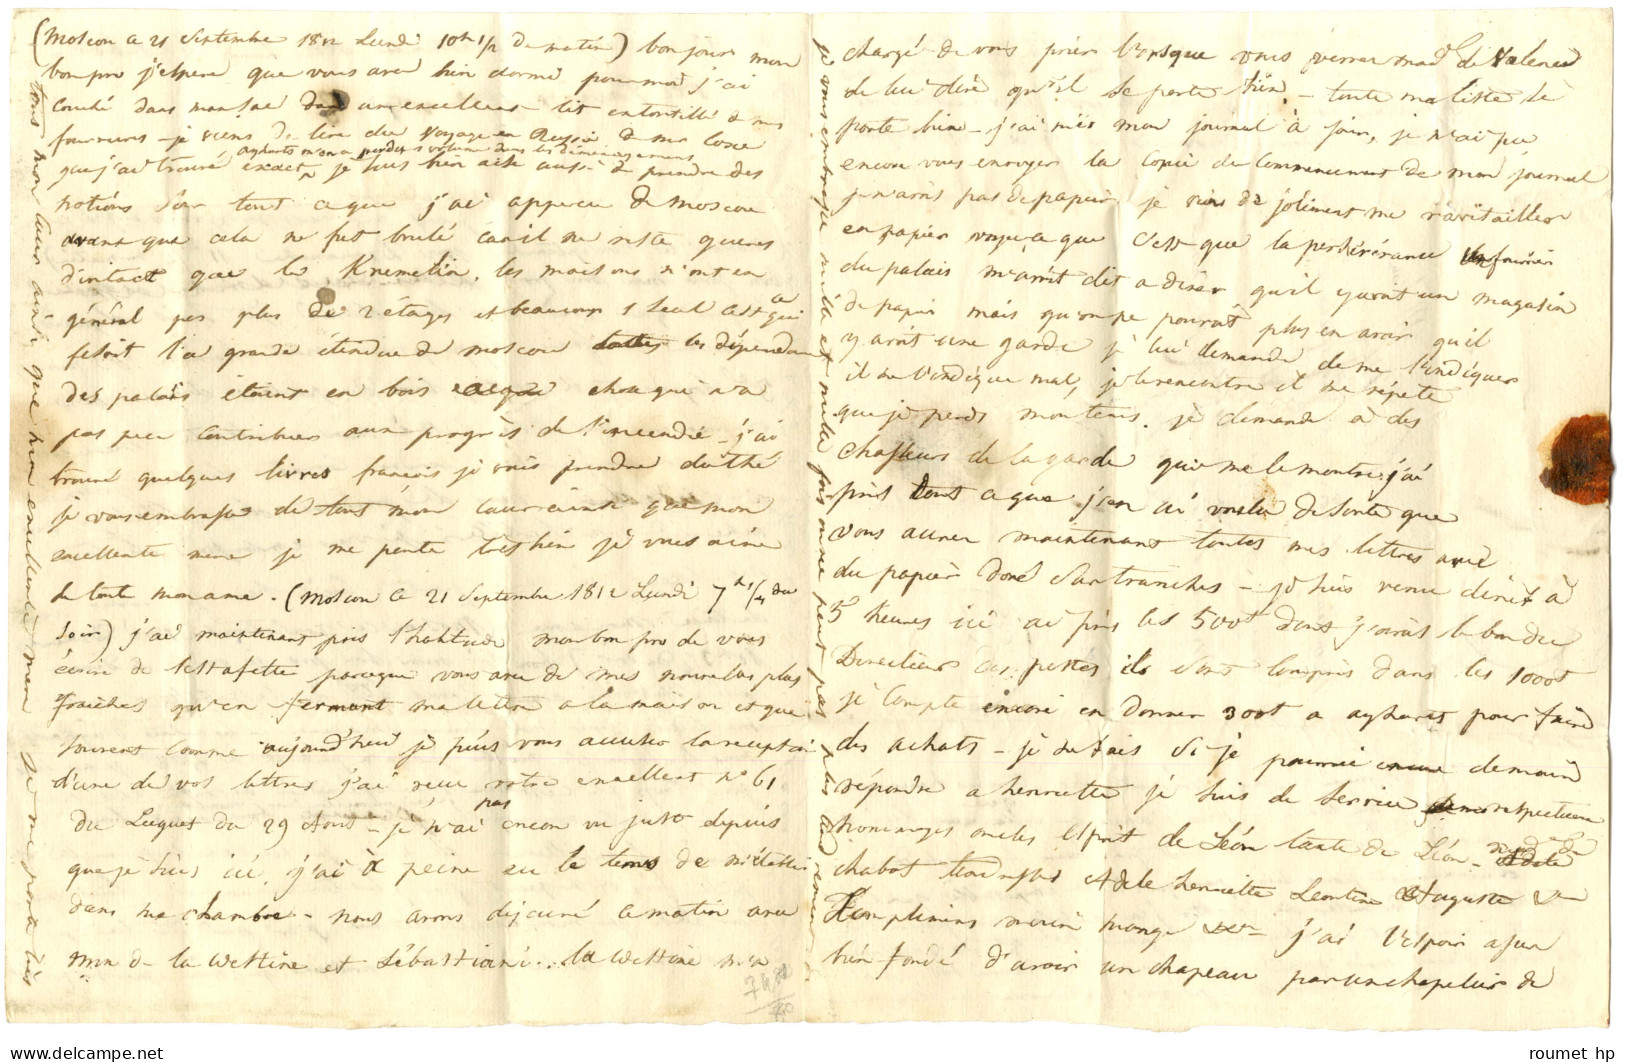 (Moscou ce 21 Septembre 1812 Lundi 10h 1/2 du matin) bonjour mon
bon pre j'espere que vous avez bien dormi pour moi j'ai
couché dans mon sac dans un excellent lit entortillé de mes
fourrures - je viens de lire du Voyage en Russie de mr Coxe
agharts m'en a perdu 1 volume dans les déménagements
que j'ai trouvé exact je suis bien aise aussi de prendre des
notions sur tout ce que j'ai apperçu de Moscou
avant que cela ne fut brulé car il ne reste gueres
d'intact que le Kremelin. les maisons n'ont en
général pas plus de 2 étages et beaucoup 1 seul c'est ce qui
fesoit la grande étendue de moscou les dépendances
des palais étoient en bois chose qui n'a
pas peu contribuer aux progrès de l'incendie - j'ai
trouvé quelques livres francois je vais prendre du thé
je vous embrasse de tout mon coeur ainsi que mon
excellente mere je me porte très bien je vous aime
de toute mon ame. (Moscou ce 21 Septembre 1812 Lundi 7h 1/4 du
soir) j'ai maintenant pris l'habitude mon bon pre de vous
écrire de l'estafette parceque vous avez de mes nouvelles plus
fraiches qu'en fermant ma lettre a la maison et que
souvent comme aujourd'hui je puis vous accuser la reception
d'une de vos lettres j'ai reçu votre excellent n° 61
du Luquet du 29 Aout - je n'ai pas encore vu just depuis
que je suis ici, j'ai à peine eu le tems de m'établir
dans ma chambre - nous avons dejeuné ce matin avec
mm de la Wettine et Sébastiani... la Wettine m'a
tous mon coeur ainsi que mon excellente mere je me porte très
chargé de vous prier lorsque vous verrez mad de Valence
de lui dire qu'il se porte bien. - toute ma liste se
porte bien - j'ai mis mon journal à jour, je n'ai pu
encore vous envoyer la copie du commencement de mon journal
je n'avois pas de papier je viens de joliment me ravitailler
en papier voyez ce que c'est que la persévérance un fourrier
du palais m'avoit dit a diner qu'il y avoit un magasin
de papier mais qu'on ne pouvoit plus en avoir qu'il
y avoit une garde je lui demande de me l'indiquer
il me l'indique mal, je le rencontre il me répete
que je perds mon tems. je demande à des
chasseurs de la garde qui me le montre j'ai
pris tout ce que j'en ai voulu de sorte que
vous aurez maintenant toutes mes lettres avec
du papier doré sur tranches - je suis venu diner à
5 heures ici ai pris les 500t dont j'avois le bon du
Directeur des postes ils sont compris dans les 1000t
je compte encore en donner 300t a agharts pour faire
des achats - je ne sais si je pourrai demain
répondre a henriette je suis de service respectueux
hommages oncles Esprit de Léon tante de Léon - mad de
chabot tendresses Adele henriette Leontine Auguste
Complimens mouge j'ai l'espoir assez
bien fondé d'avoir un chapeau par un chapelier de
je vous embrasse mille et mille fois on ne peut pas plus tendrement
roumet hp